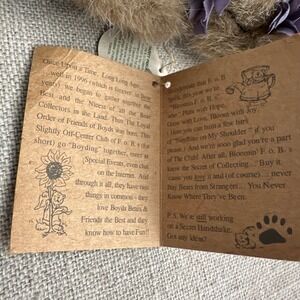 Once Upon a Time, Long Long Ago...
well in 1996 (which is forever in bear
years) we began to gather together the
Best and the Nicest of all the Bear
Collectors in the Land. Thus The Loyal
Order of Friends of Boyds was born. This
Slightly Off-Center Club of F. o. B. s (for
short) go "Boyding" together, meet at
Special Events, even chat
on the Internet. And
through it all, they have two
things in common - they
love Boyds Bears &
Friends the Best and they
know how to have Fun!!
F. o. B.
Spirit, this year we're
"Blooming F. o. B. s
who" Plant with Hope,
Grow with Love, Bloom with Joy.
Here you can hum a few bars
of "Sunshine on My Shoulder" if you
must.) And we're soon glad you're a part
of The Club! After all, Bloomin' F. o. B. s
know the Secret of Collecting...Buy it
cause you love it and (of course)... never
Buy Bears from Strangers... You Never
Know Where They've Been.
P. S. We're still working
on a Secret Handshake.
Got any Ideas?